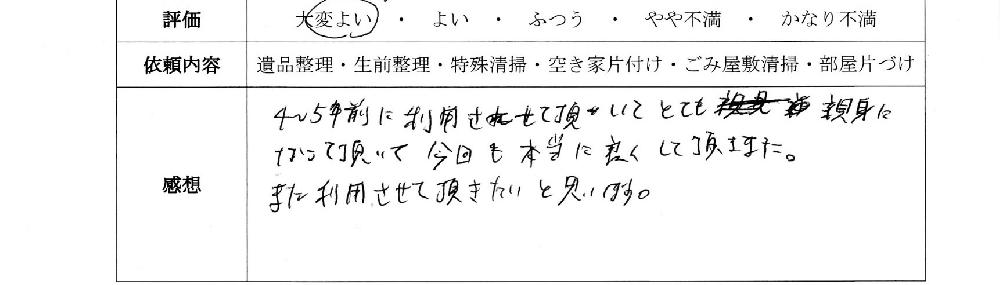 評価 大変よい ・ よい ・ ふつう ・ やや不満 ・ かなり不満
依頼内容 遺品整理・生前整理・特殊清掃・空き家片付け・ごみ屋敷清掃・部屋片づけ
感想
4~5年前に利用させて頂いてとても 親身に
なって頂いて今回も本当に良くして頂きました。
また利用させて頂きたいと思います。